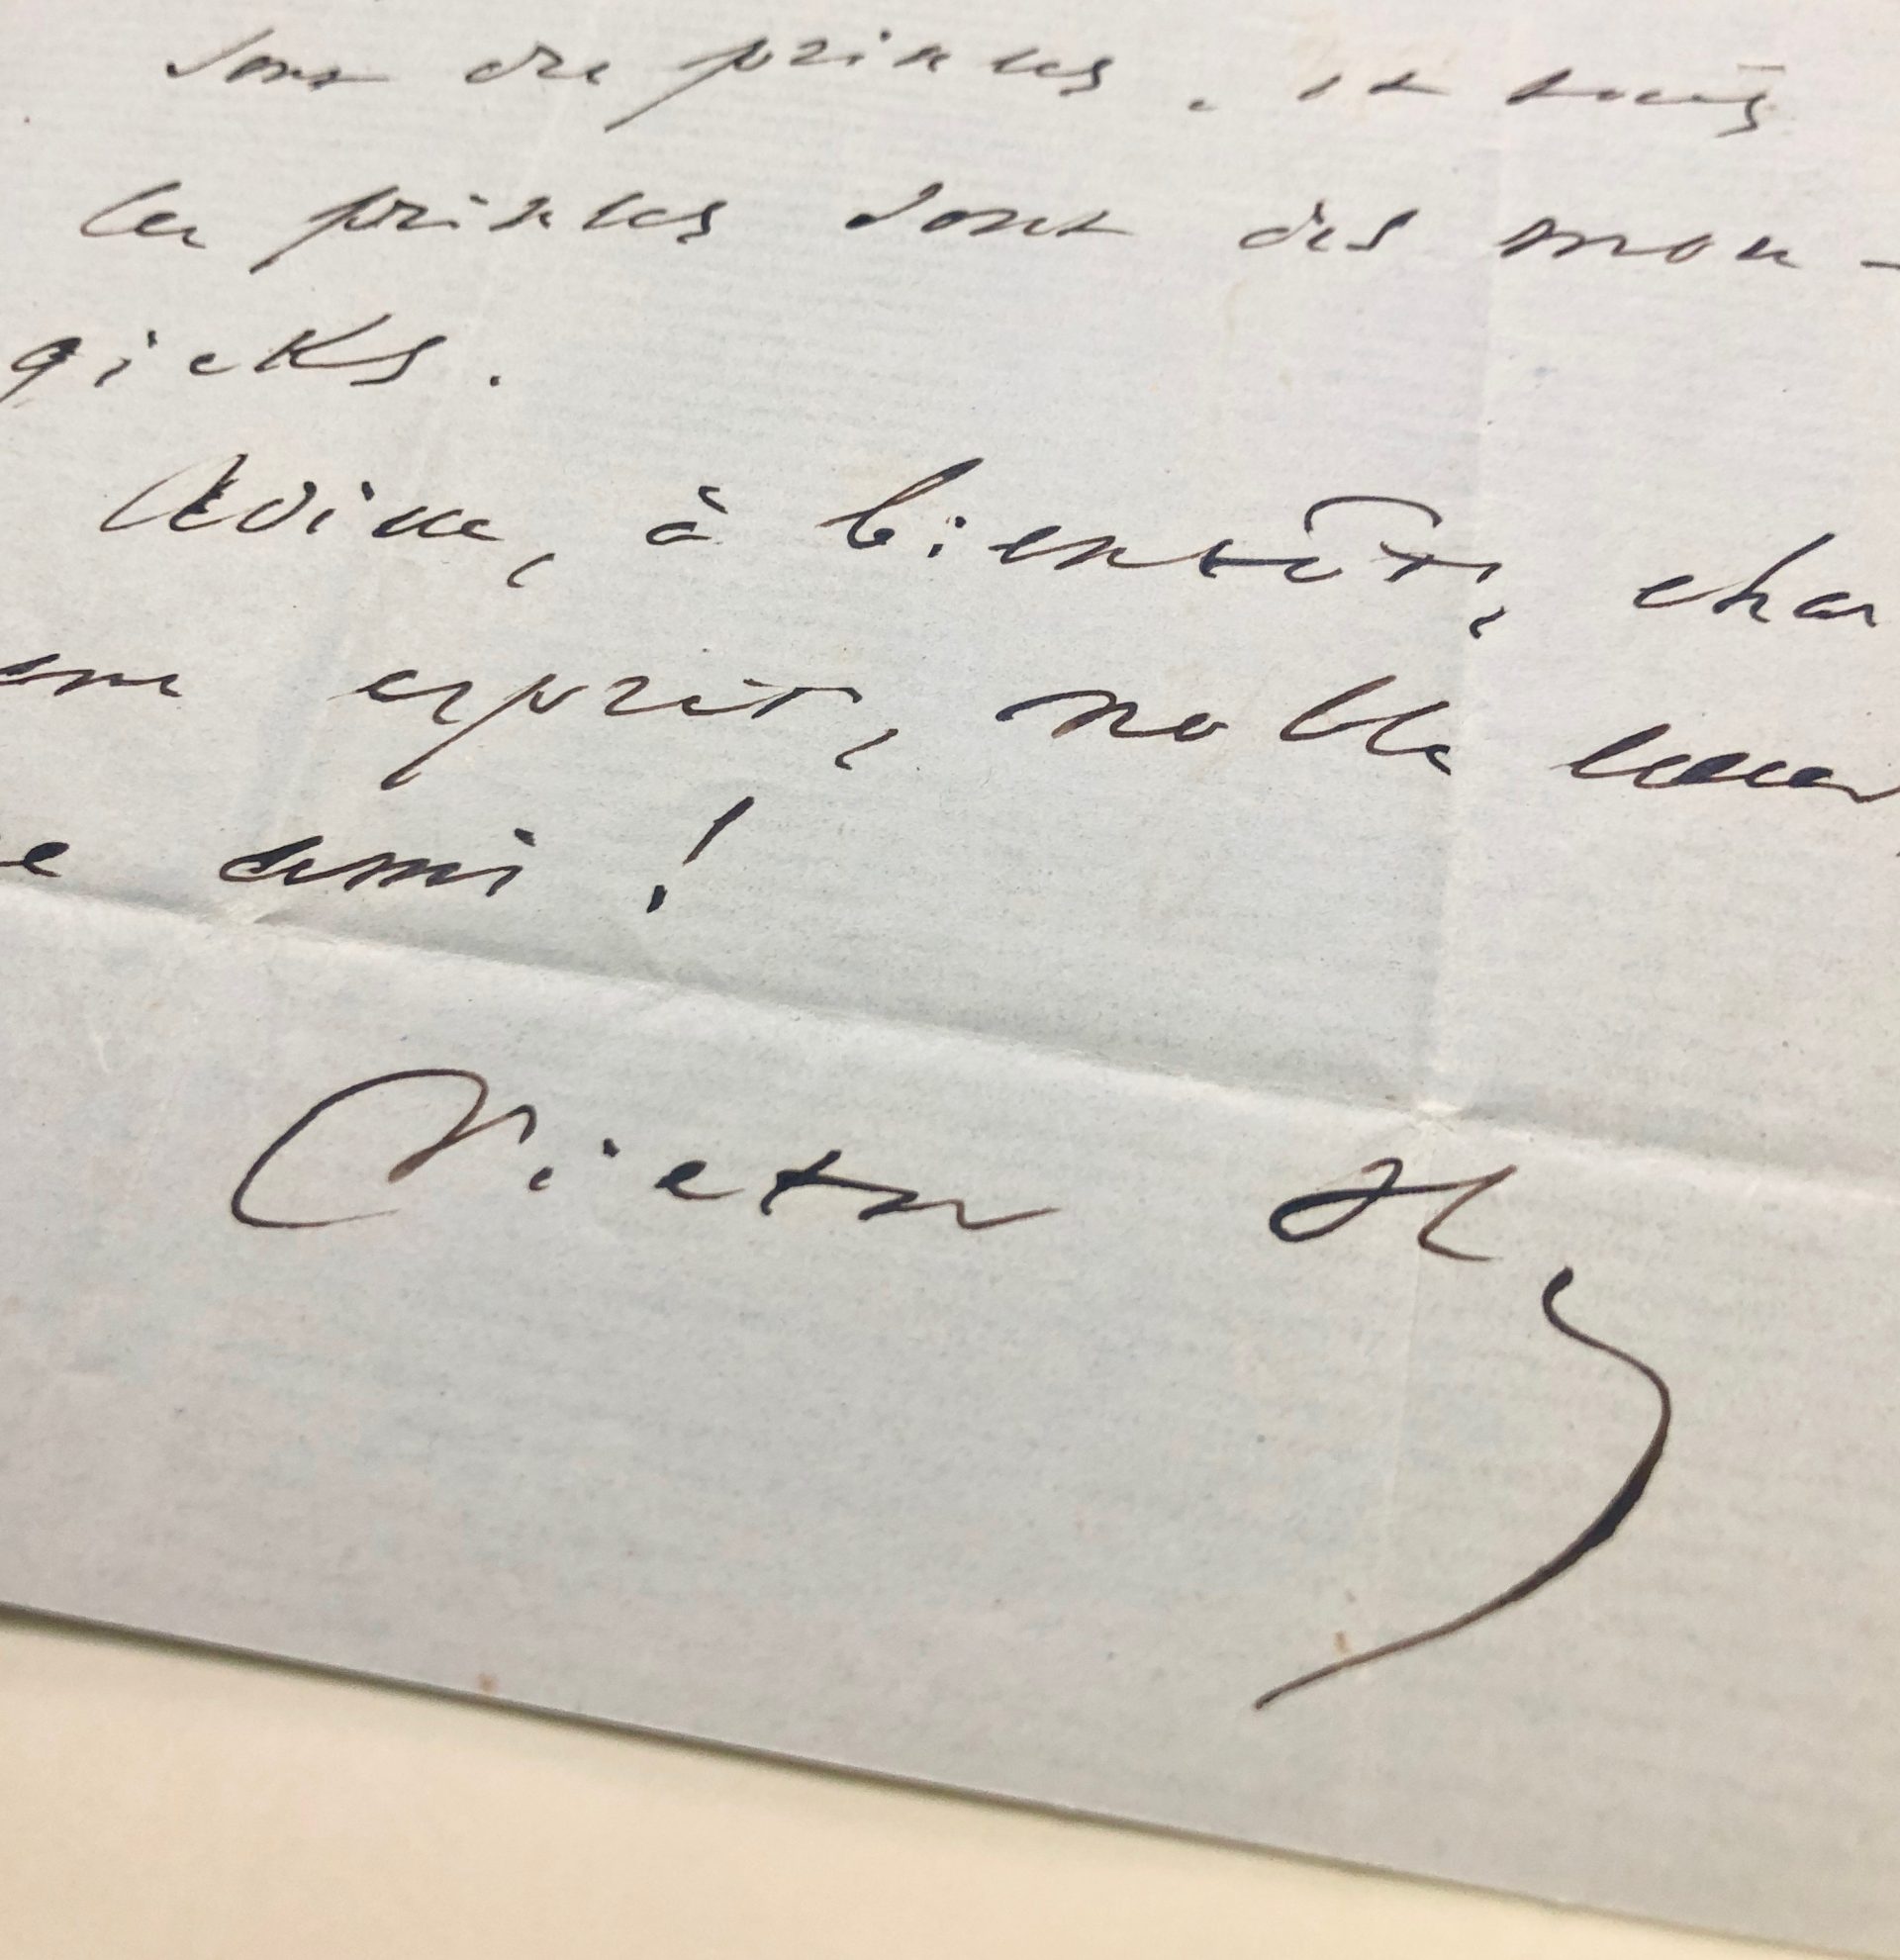 sont des princes, et tous
les princes sont des mou-
gicks.
Adieu, à bientôt, char
esprit, noble cœur,
e ami !
Victor H